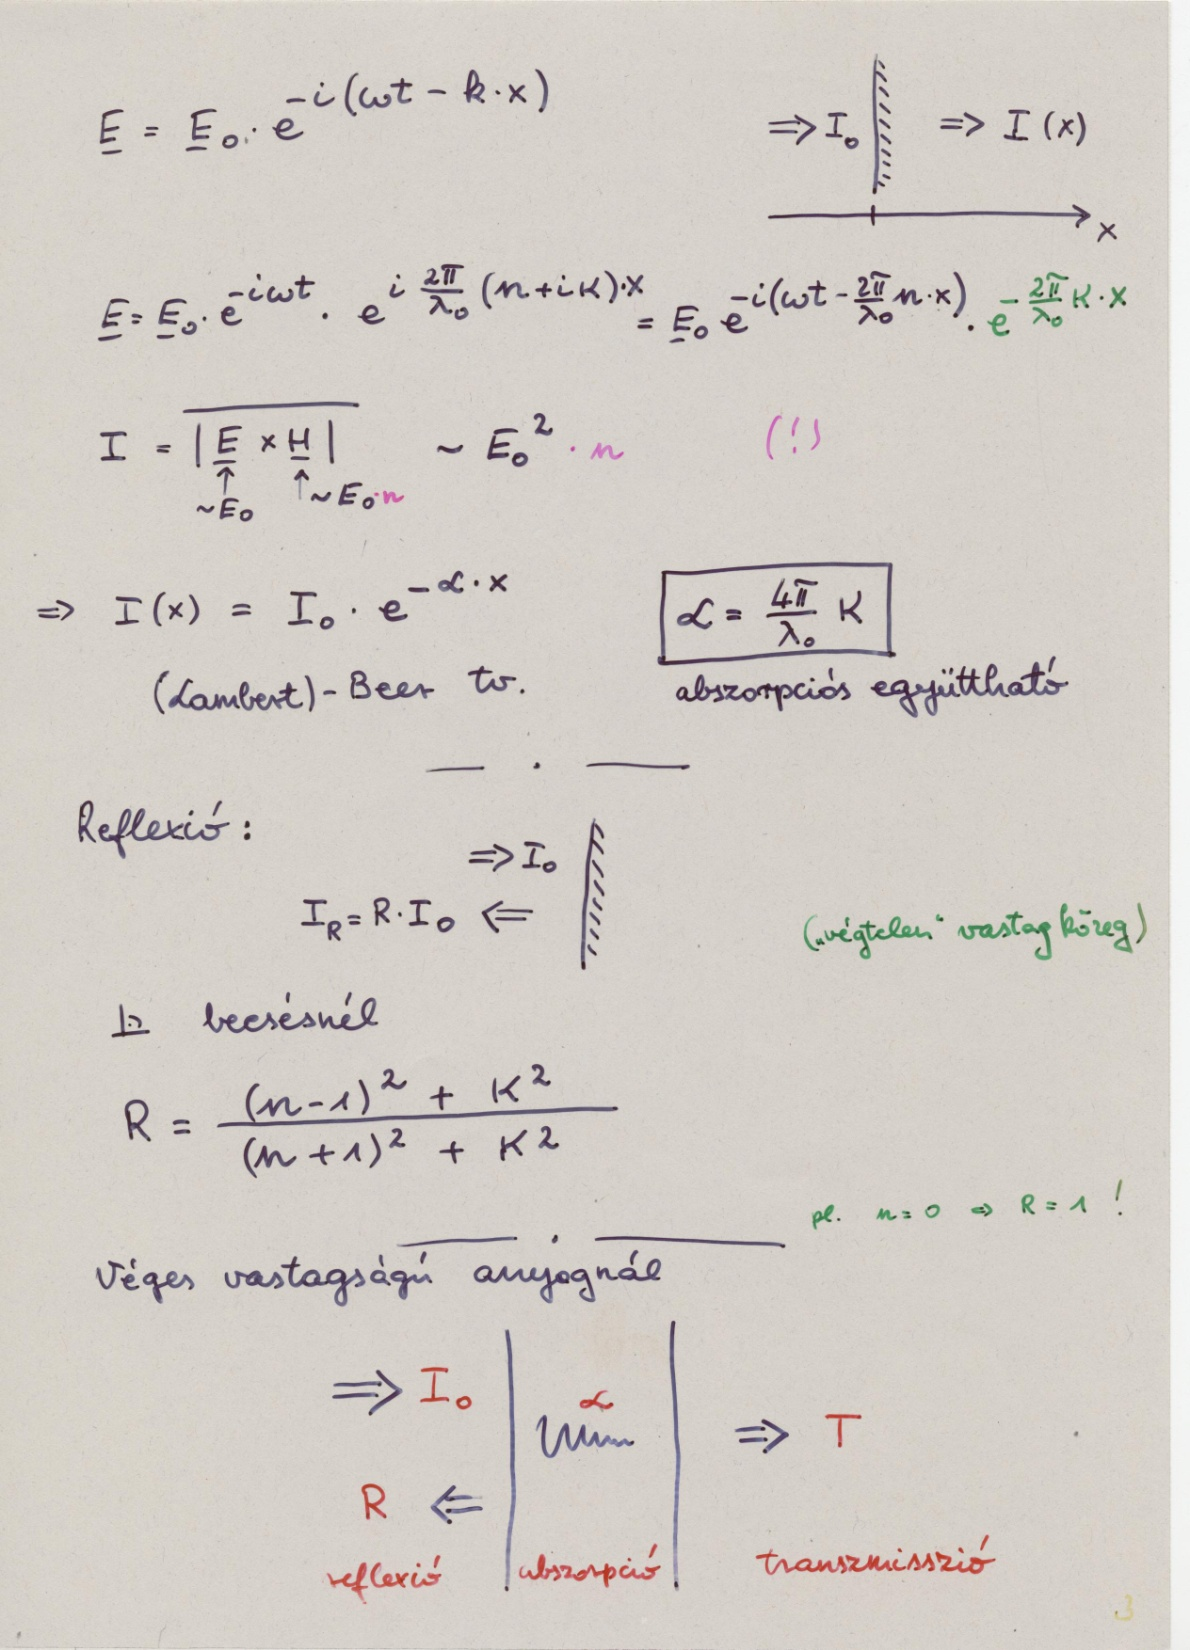 E = E₀ · e^{-i(ωt - k·x)}
⇒ I₀ ⇒ I(x)
x
E = E₀ · e^{-iωt} · e^{i 2π/λ₀ (n+iK)·x} = E₀ e^{-i(ωt - 2π/λ₀ n·x)} · e^{- 2π/λ₀ K·x}
I = |E × H| ~ E₀² · n (!)
↑ ↑
~E₀ ~E₀·n
⇒ I(x) = I₀ · e^{-α·x} α = 4π/λ₀ K
(Lambert)-Beer tv. abszorpciós együttható
Reflexió:
⇒ I₀
I_R = R·I₀ ⇐
(„végtelen" vastag közeg)
⊥ beesésnél
R = ((n-1)² + K²) / ((n+1)² + K²)
pl. n=0 ⇒ R=1 !
Véges vastagságú anyagnál
⇒ I₀ α ⇒ T
R ⇐
reflexió abszorpció transzmisszió
3